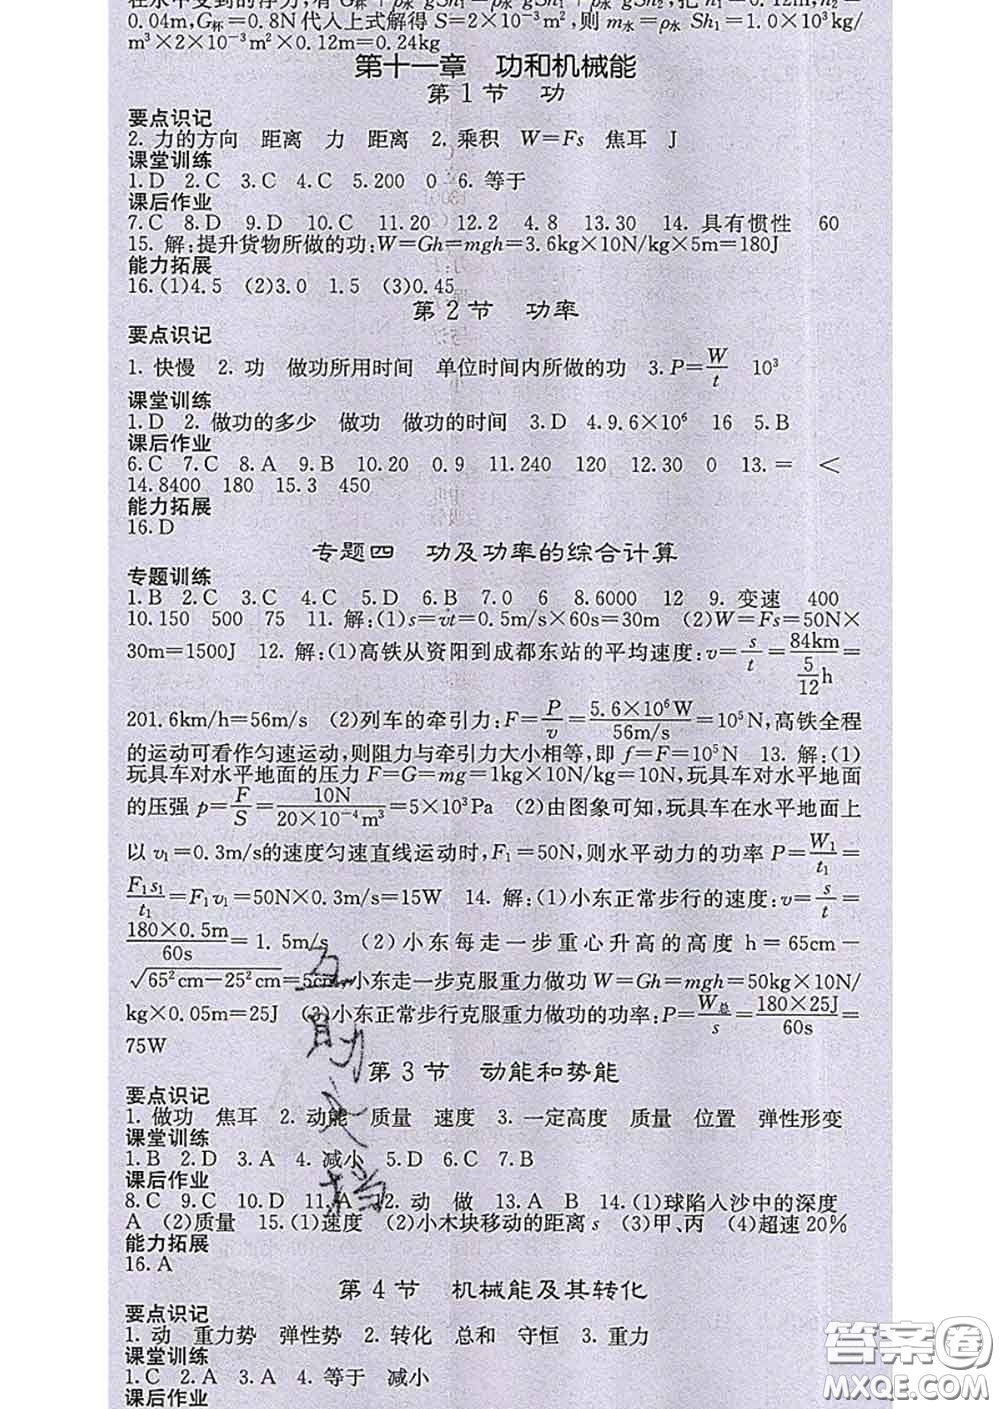 0.04m,G杯=0.8N代入上式解得S=2×10⁻³m²,则m水=ρ水Sh₁=1.0×10³kg/
m³×2×10⁻³m²×0.12m=0.24kg
第十一章 功和机械能
第1节 功
要点识记
2. 力的方向 距离 力 距离 2. 乘积 W=Fs 焦耳 J
课堂训练
1.D 2.C 3.C 4.C 5.200 0 6. 等于
课后作业
7.C 8.D 9.D 10.C 11.20 12.2 4.8 13.30 14. 具有惯性 60
15. 解:提升货物所做的功:W=Gh=mgh=3.6kg×10N/kg×5m=180J
能力拓展
16.(1)4.5 (2)3.0 1.5 (3)0.45
第2节 功率
要点识记
1. 快慢 2. 功 做功所用时间 单位时间内所做的功 3.P=W/t 10³
课堂训练
1.D 2. 做功的多少 做功 做功的时间 3.D 4.9.6×10⁶ 16 5.B
课后作业
6.C 7.C 8.A 9.B 10.20 0.9 11.240 120 12.30 0 13.= <
14.8400 180 15.3 450
能力拓展
16.D
专题四 功及功率的综合计算
专题训练
1.B 2.C 3.C 4.C 5.D 6.B 7.0 6 8.6000 12 9. 变速 400
10.150 500 75 11. 解:(1)s=vt=0.5m/s×60s=30m (2)W=Fs=50N×
30m=1500J 12. 解:(1)高铁从资阳到成都东站的平均速度:v=s/t=84km/(5/12 h)=
201.6km/h=56m/s (2)列车的牵引力:F=P/v=5.6×10⁶W/56m/s=10⁵N,高铁全程
的运动可看作匀速运动,则阻力与牵引力大小相等,即f=F=10⁵N 13. 解:(1)
玩具车对水平地面的压力F=G=mg=1kg×10N/kg=10N,玩具车对水平地面
的压强p=F/S=10N/20×10⁻⁴m³=5×10³Pa (2)由图象可知,玩具车在水平地面上
以v₁=0.3m/s的速度匀速直线运动时,F₁=50N,则水平动力的功率P=W₁/t₁=
F₁s₁/t₁=F₁v₁=50N×0.3m/s=15W 14. 解:(1)小东正常步行的速度:v=s/t=
180×0.5m/60s=1.5m/s (2)小东每走一步重心升高的高度h=65cm-
√65²cm-25²cm=5cm,小东走一步克服重力做功W=Gh=mgh=50kg×10N/
kg×0.05m=25J (3)小东正常步行克服重力做功的功率:P=W总/s=180×25J/60s=
75W
第3节 动能和势能
要点识记
1. 做功 焦耳 2. 动能 质量 速度 3. 一定高度 质量 位置 弹性形变
课堂训练
1.B 2.D 3.A 4. 减小 5.D 6.C 7.B
课后作业
8.C 9.C 10.D 11.A 12. 动 做 13.A B 14.(1)球陷入沙中的深度
A (2)质量 15.(1)速度 (2)小木块移动的距离s (3)甲、丙 (4)超速20%
能力拓展
16.A
第4节 机械能及其转化
要点识记
1. 动 重力势 弹性势 2. 转化 总和 守恒 3. 重力
课堂训练
1.C 2.A 3.A 4. 等于 减小
课后作业
答案圈
MXQE.COM